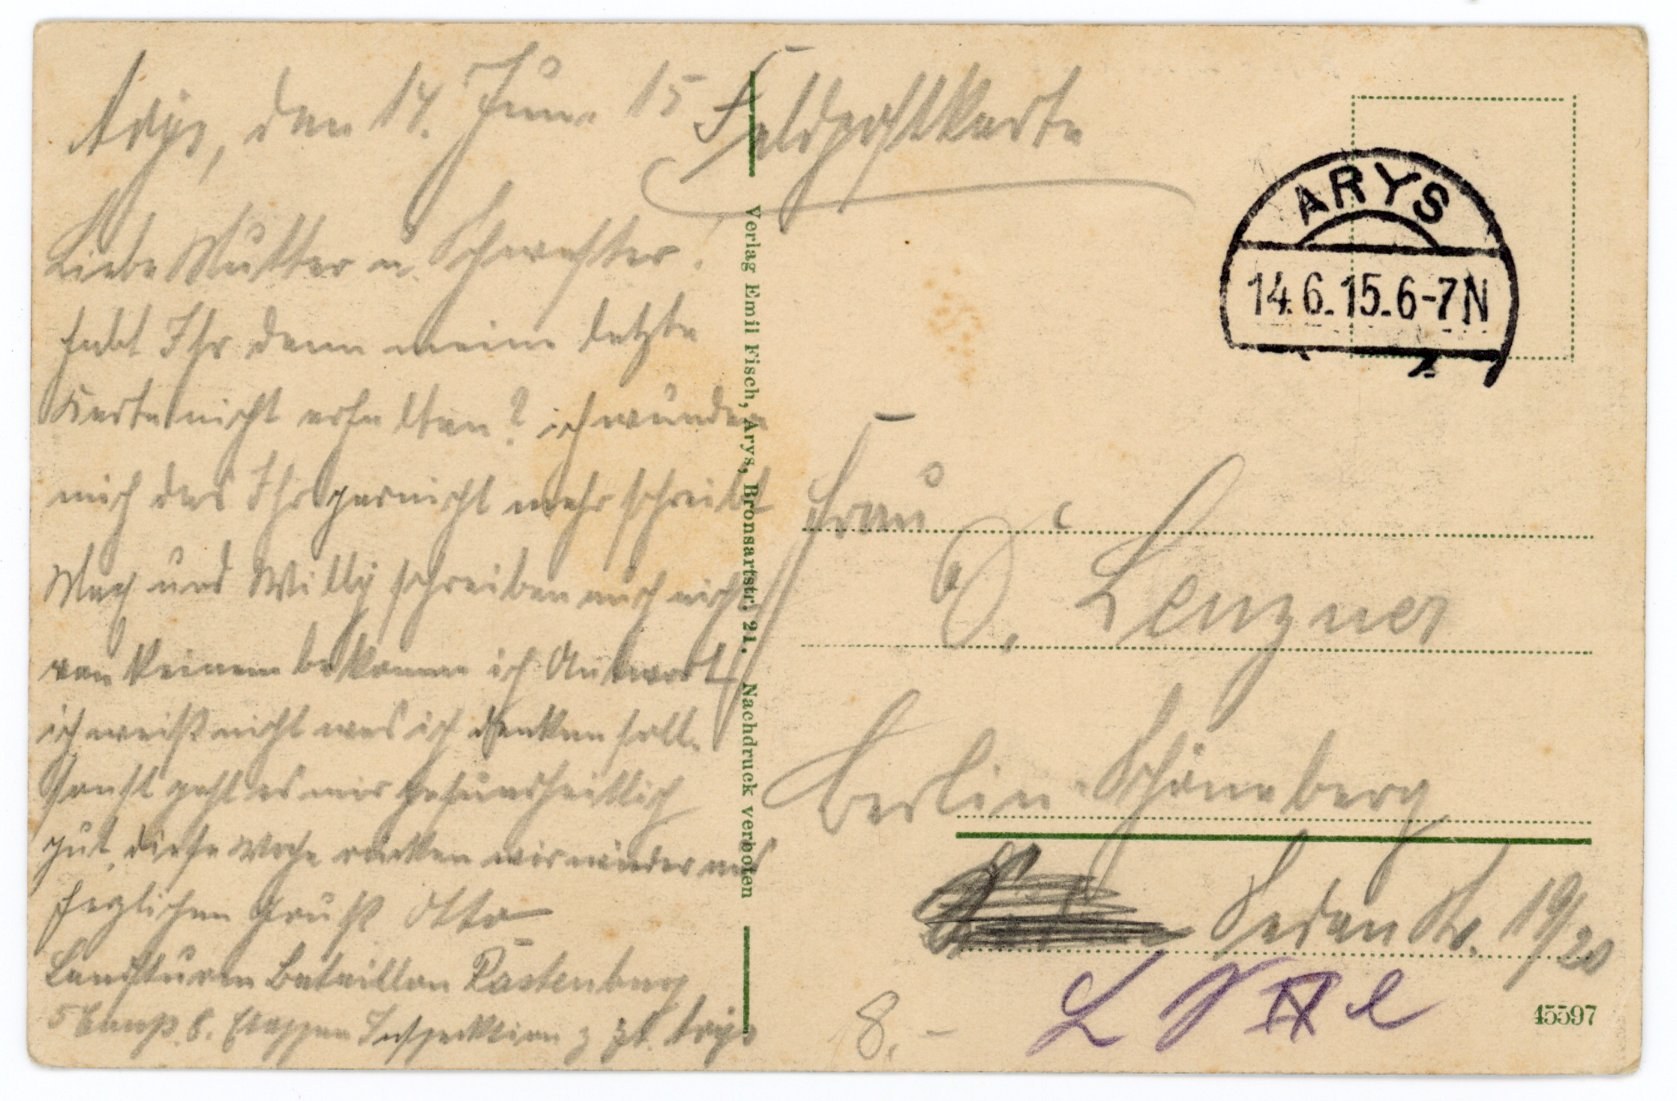 Arys, den 14. Juni 15
Liebe Mutter u. Schwester!
habt Ihr denn meine letzte
Karte nicht erhalten? ich wundere
mich das Ihr garnicht mehr schreibt
und Willy schreiben auch nicht
von keinem bekomme ich Antwort
ich weiß nicht was ich denken soll.
Sonst geht es mir gesundheitlich
gut, diese Woche rücken wir wieder aus
Herzlichen Gruß Otto
Landsturm Bataillon Rastenburg
5 Komp. 8. Etappen Inspektion z. Zt. Arys
Feldpostkarte
ARYS
14.6.15.6-7N
Verlag Emil Fisch, Arys, Bronsartstr. 21. Nachdruck verboten
Frau
O. Lenzner
Berlin-Schöneberg
Sedan Str. 19/20
8.-
45597